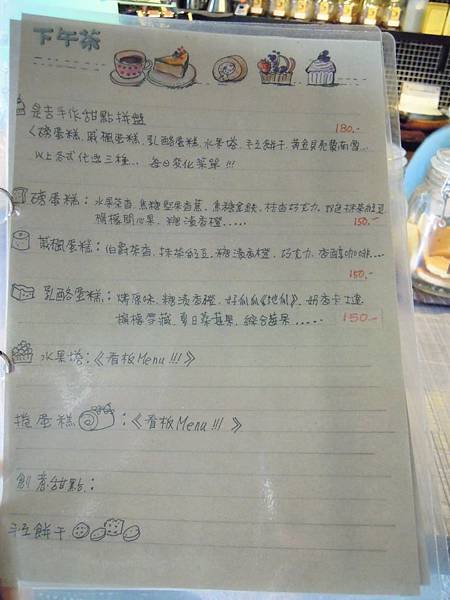 下午茶
是吉手作甜點拼盤
180.-
(磅蛋糕、戚楓蛋糕、乳酪蛋糕、水果塔、手工餅干、黃金貝殼費南雪...
以上各式任選三種... 每日变化菜單!!!
磅蛋糕：水果茶香、焦糖堅果香蕉、焦糖金鉄、桔香巧克力、抹茶紅豆
檸檬開心果、糖漬香橙.....
150.-
戚楓蛋糕：伯爵茶香、抹茶紅豆、糖漬香橙、巧克力、香醇咖啡...
150.-
乳酪蛋糕：烤原味、糖漬香橙、好瓜瓜《地瓜》、奶香卡士達
檸檬雪藏、夏日桑莓果、綜合莓果.....
150.-
水果塔：《看板Menu!!!》
捲蛋糕：《看板Menu!!!》
創意甜點：
手工餅干